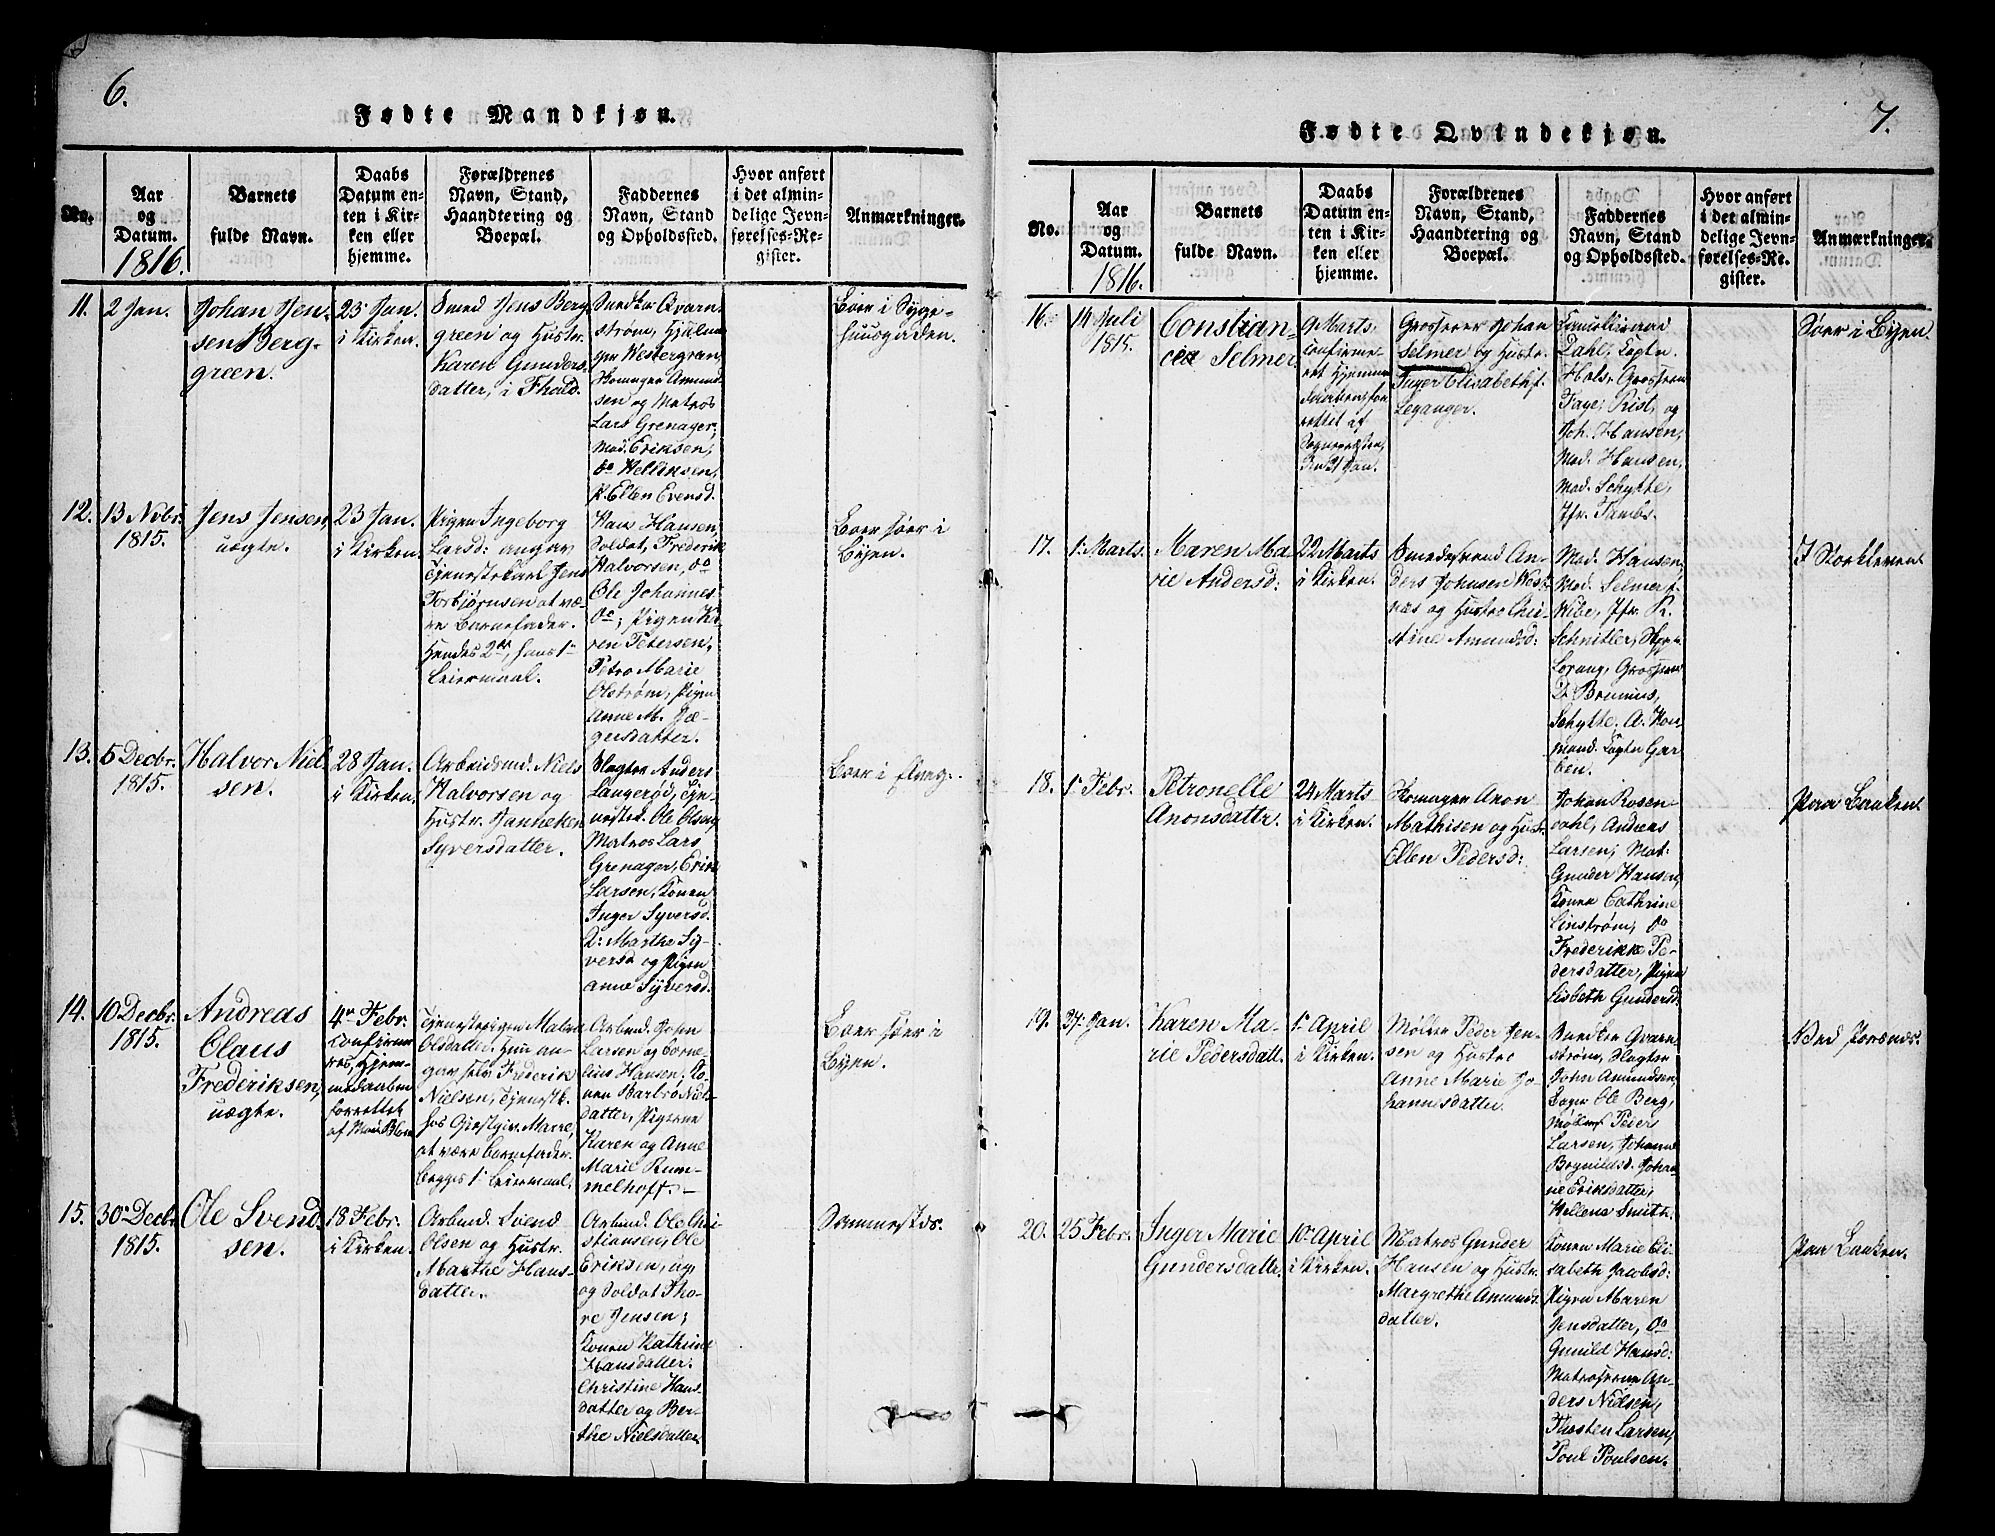 6.
Fødte Mandkjøn.
No.
Aar
og
Datum.
1816.
Barnets
fulde Navn.
Daabs
Datum en-
ten i Kir-
ken eller
hjemme.
Forældrenes
Navn, Stand,
Haandtering og
Boepæl.
Faddernes
Navn, Stand
og Opholdssted.
Hvor anført
i det almin-
delige Jevn-
førelses-Re-
gister.
Anmærkninger.
11.
2 Jan.
Johan Jen-
sen Berg-
green.
23 Jan.
i Kirken.
Smed Jens Berg
green og Hustr.
Karen Gunders
datter, i Fhald.
Snedker Qvarn-
strøm,
Westergran,
Amund-
sen og Matros
Lars Grenager,
Mad. Eriksen,
do Hellensen,
P. Ellen Evensd.
Boer i Syge-
huusgaden.
12.
13 Nvbr.
1815.
Jens Jensen,
uægte.
23 Jan.
i Kirken.
Pigen Ingeborg
Larsd: angav
Tjenestekarl Jens
Torbjørnsen at væ-
re Barnefader.
Hendes 2det, hans 1te
Leiermaal.
Hans Hansen,
Soldat, Frederik
Halvorsen, do
Ole Johannes.
do; Pigen Ka-
ren Petersen,
Petro Marie
Olstrøm, Pigen
Anne M. Jæ-
gersdatter.
Boer her i
Byen.
13.
5 Decbr.
1815.
Halvor Niel-
sen.
28 Jan.
i Kirken.
Arbeidsmd. Niels
Halvorsen og
Hustr. Janneken
Syversdatter.
Slagter Anders
Langerød, Tje-
nested. Ole Olsen,
Matros Lars
Grenager, Erik
Larsen, Konen
Inger Syversd.
K: Marthe Sy-
versd og Pigen
Anne Syversd.
Boer i
14.
10 Decbr.
1815.
Andreas
Olaus
Frederiksen,
uægte.
4de Febr.
Confirme-
res, Hjem-
medaaben
forrettet
af Mad. Blom
Tjenestepigen Malene
Olsdatter. Hun an-
gav selv Frederik
Nielsen, Tjenestk.
hos Giestgiv. Marre,
at være Barnefader.
Begges 1te Leiermaal.
Arbmd. John
Larsen og Corne-
lius Hansen. Ko-
nen Barbro Niels-
datter, Pigerne
Karen og Anne
Marie Rum-
melhoff.
Boer her i
Byen.
15.
30 Decbr.
1815.
Ole Svend-
sen.
18 Febr.
i Kirken.
Arbmd. Svend
Olsen og Hustr.
Marthe Hans-
datter.
Arbmd. Ole Chri-
stiansen, Ole
Eriksen,
og Soldat Tho-
re Jensen;
Konen Kathrine
Hansdatter.
Christine Hans-
datter og Ber-
the Nielsdatter.
7.
Fødte Qvindekjøn.
No.
Aar
og
Datum.
1816.
Barnets
fulde Navn.
Daabs
Datum en-
ten i Kir-
ken eller
hjemme.
Forældrenes
Navn, Stand,
Haandtering og
Boepæl.
Faddernes
Navn, Stand
og Opholdssted.
Hvor anført
i det almin-
delige Jevn-
førelses-Re-
gister.
Anmærkninger.
16.
14 Juli
1815.
Constian-
cia Selmer.
9 Marts,
Confirme-
ret Hjemme-
daaben, for-
rettet af
Sognepræsten,
den 21 Jan.
Grosserer Johan
Selmer og Hustr.
Inger Elisabeth f.
Leganger.
Dahl, Captn.
Hals, Grosserer
Faye, Rist, og
Joh. Hansen,
Mad. Hansen,
Mad. Schytte,
Jfr. Tambs.
Boer i Byen.
17.
1 Marts.
Maren Ma-
rie Andersd:
22 Marts
i Kirken.
Smedesvend An-
ders Johnsen
og Hustro Chri-
stine Amundsd:
Mad. Hansen,
Mad. Selmer f.
Wibe, Jfr. R.
Schnitler, Skipp.
Lorang, Grosserer
D. Brunius,
Schytte. A.
Captn Gar-
ben.
I
18.
1 Febr.
Petronelle
Aronsdattr.
24 Marts
i Kirken.
Aron
Mathisen og Hustr.
Ellen Pedersd:
Johan Rosen-
dahl, Andreas
Larsen, Mat:
Gunder Hansen,
Konen Cathrine
Linstrøm, do
Frederikke Pe-
dersdatter, Pigen
Lisbeth Gundersd:
Paa Banken.
19.
27 Jan.
Karen Ma-
rie Pedersdatt.
1 April
i Kirken.
Møller Peder Jen-
sen og Hustro
Anne Marie Jo-
hannesdatter.
Snedker Qvarn-
strøm, Slagter
John Amundsen,
Bager Ole Berg,
Peders
Larsen, Johanne
Bognildsd. Johan-
ne Eriksdatter,
Hellene Smith.
Ved
20.
25 Febr.
Inger Marie
Gundersdattr.
10 April
i Kirken.
Matros Gunder
Hansen og Hustr.
Margrethe Amunds-
datter.
Konen Marie Eli-
sabeth Jacobsd:
Pigen Maren
Jensdatter, do
Gunild Hansd:
Matroserne An-
ders Nielsen,
Thosten Larsen,
Poul Poulsen.
Paa Banken.